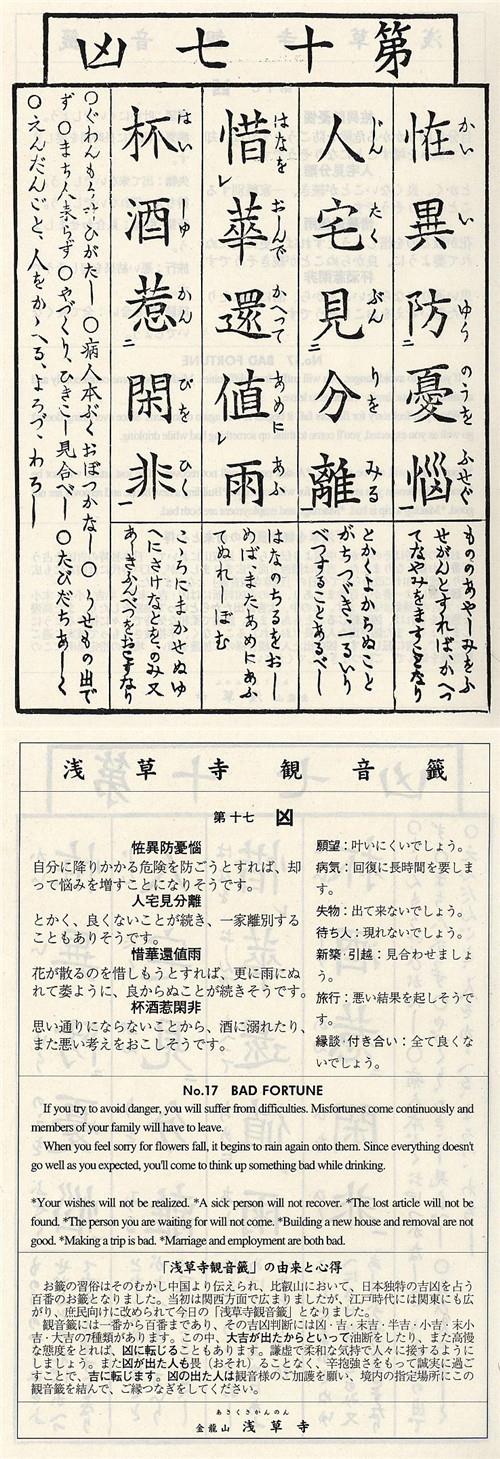 第十七凶
恠異防憂悩
かい い ゆう のうを ふせぐ
もののあやしみをふ
せがんとすれば、かへつ
てなやみをますことなり
人宅見分離
たく ぶん りを みる
とかくよからぬこと
がちつゞき、一るいり
べつすることあるべし
惜華還値雨
はなを おしんで かへって あめに あふ
はなのちるをおし
めば、またあめにあふ
てぬれしぼむ
杯酒惹閑非
はい しゆ かん ぴを ひく
こゝろにまかせぬゆ
へにさけなどを、のみ又
あしきふんべつをおこすなり
○ぐわんもうかなひがたし○病人本ぶくおぼつかなし○うせもの出で
ず○まち人来らず○やづくり、ひきこし見合べし○たびだちあしく
○えんだんごと、人をかゝへる、よろづ、わろし
浅草寺観音籤
第十七 凶
恠異防憂悩
自分に降りかかる危険を防ごうとすれば、却
って悩みを増すことになりそうです。
人宅見分離
とかく、良くないことが続き、一家離別する
こともありそうです。
惜華還値雨
花が散るのを惜しもうとすれば、更に雨にぬ
れて萎ように、良からぬことが続きそうです。
杯酒惹閑非
思い通りにならないことから、酒に溺れたり、
また悪い考えをおこしそうです。
願望：叶いにくいでしょう。
病気：回復に長時間を要しま
す。
失物：出て来ないでしょう。
待ち人：現れないでしょう。
新築・引越：見合わせましょ
う。
旅行：悪い結果を起しそうで
す。
縁談・付き合い：全て良くな
いでしょう。
No.17 BAD FORTUNE
If you try to avoid danger, you will suffer from difficulties. Misfortunes come continuously and
members of your family will have to leave.
When you feel sorry for flowers fall, it begins to rain again onto them. Since everything doesn't
go well as you expected, you'll come to think up something bad while drinking.
*Your wishes will not be realized. *A sick person will not recover. *The lost article will not be
found. *The person you are waiting for will not come. *Building a new house and removal are not
good. *Making a trip is bad. *Marriage and employment are both bad.
「浅草寺観音籤」の由来と心得
お籤の習俗はそのむかし中国より伝えられ、比叡山において、日本独特の吉凶を占う
百番のお籤となりました。当初は関西方面で広まりましたが、江戸時代には関東にも広
がり、庶民向けに改められて今日の「浅草寺観音籤」となりました。
観音籤には一番から百番まであり、その吉凶判断には凶・吉・末吉・半吉・小吉・末小
吉・大吉の7種類があります。この中、大吉が出たからといって油断をしたり、また高慢
な態度をとれば、凶に転じることもあります。謙虚で柔和な気持で人々に接するように
しましょう。また凶が出た人も畏（おそれ）ることなく、辛抱強さをもって誠実に過ご
すことで、吉に転じます。凶の出た人は観音様のご加護を願い、境内の指定場所にこの
観音籤を結んで、ご縁つなぎをしてください。
あさくさかんのん
金龍山 浅草寺